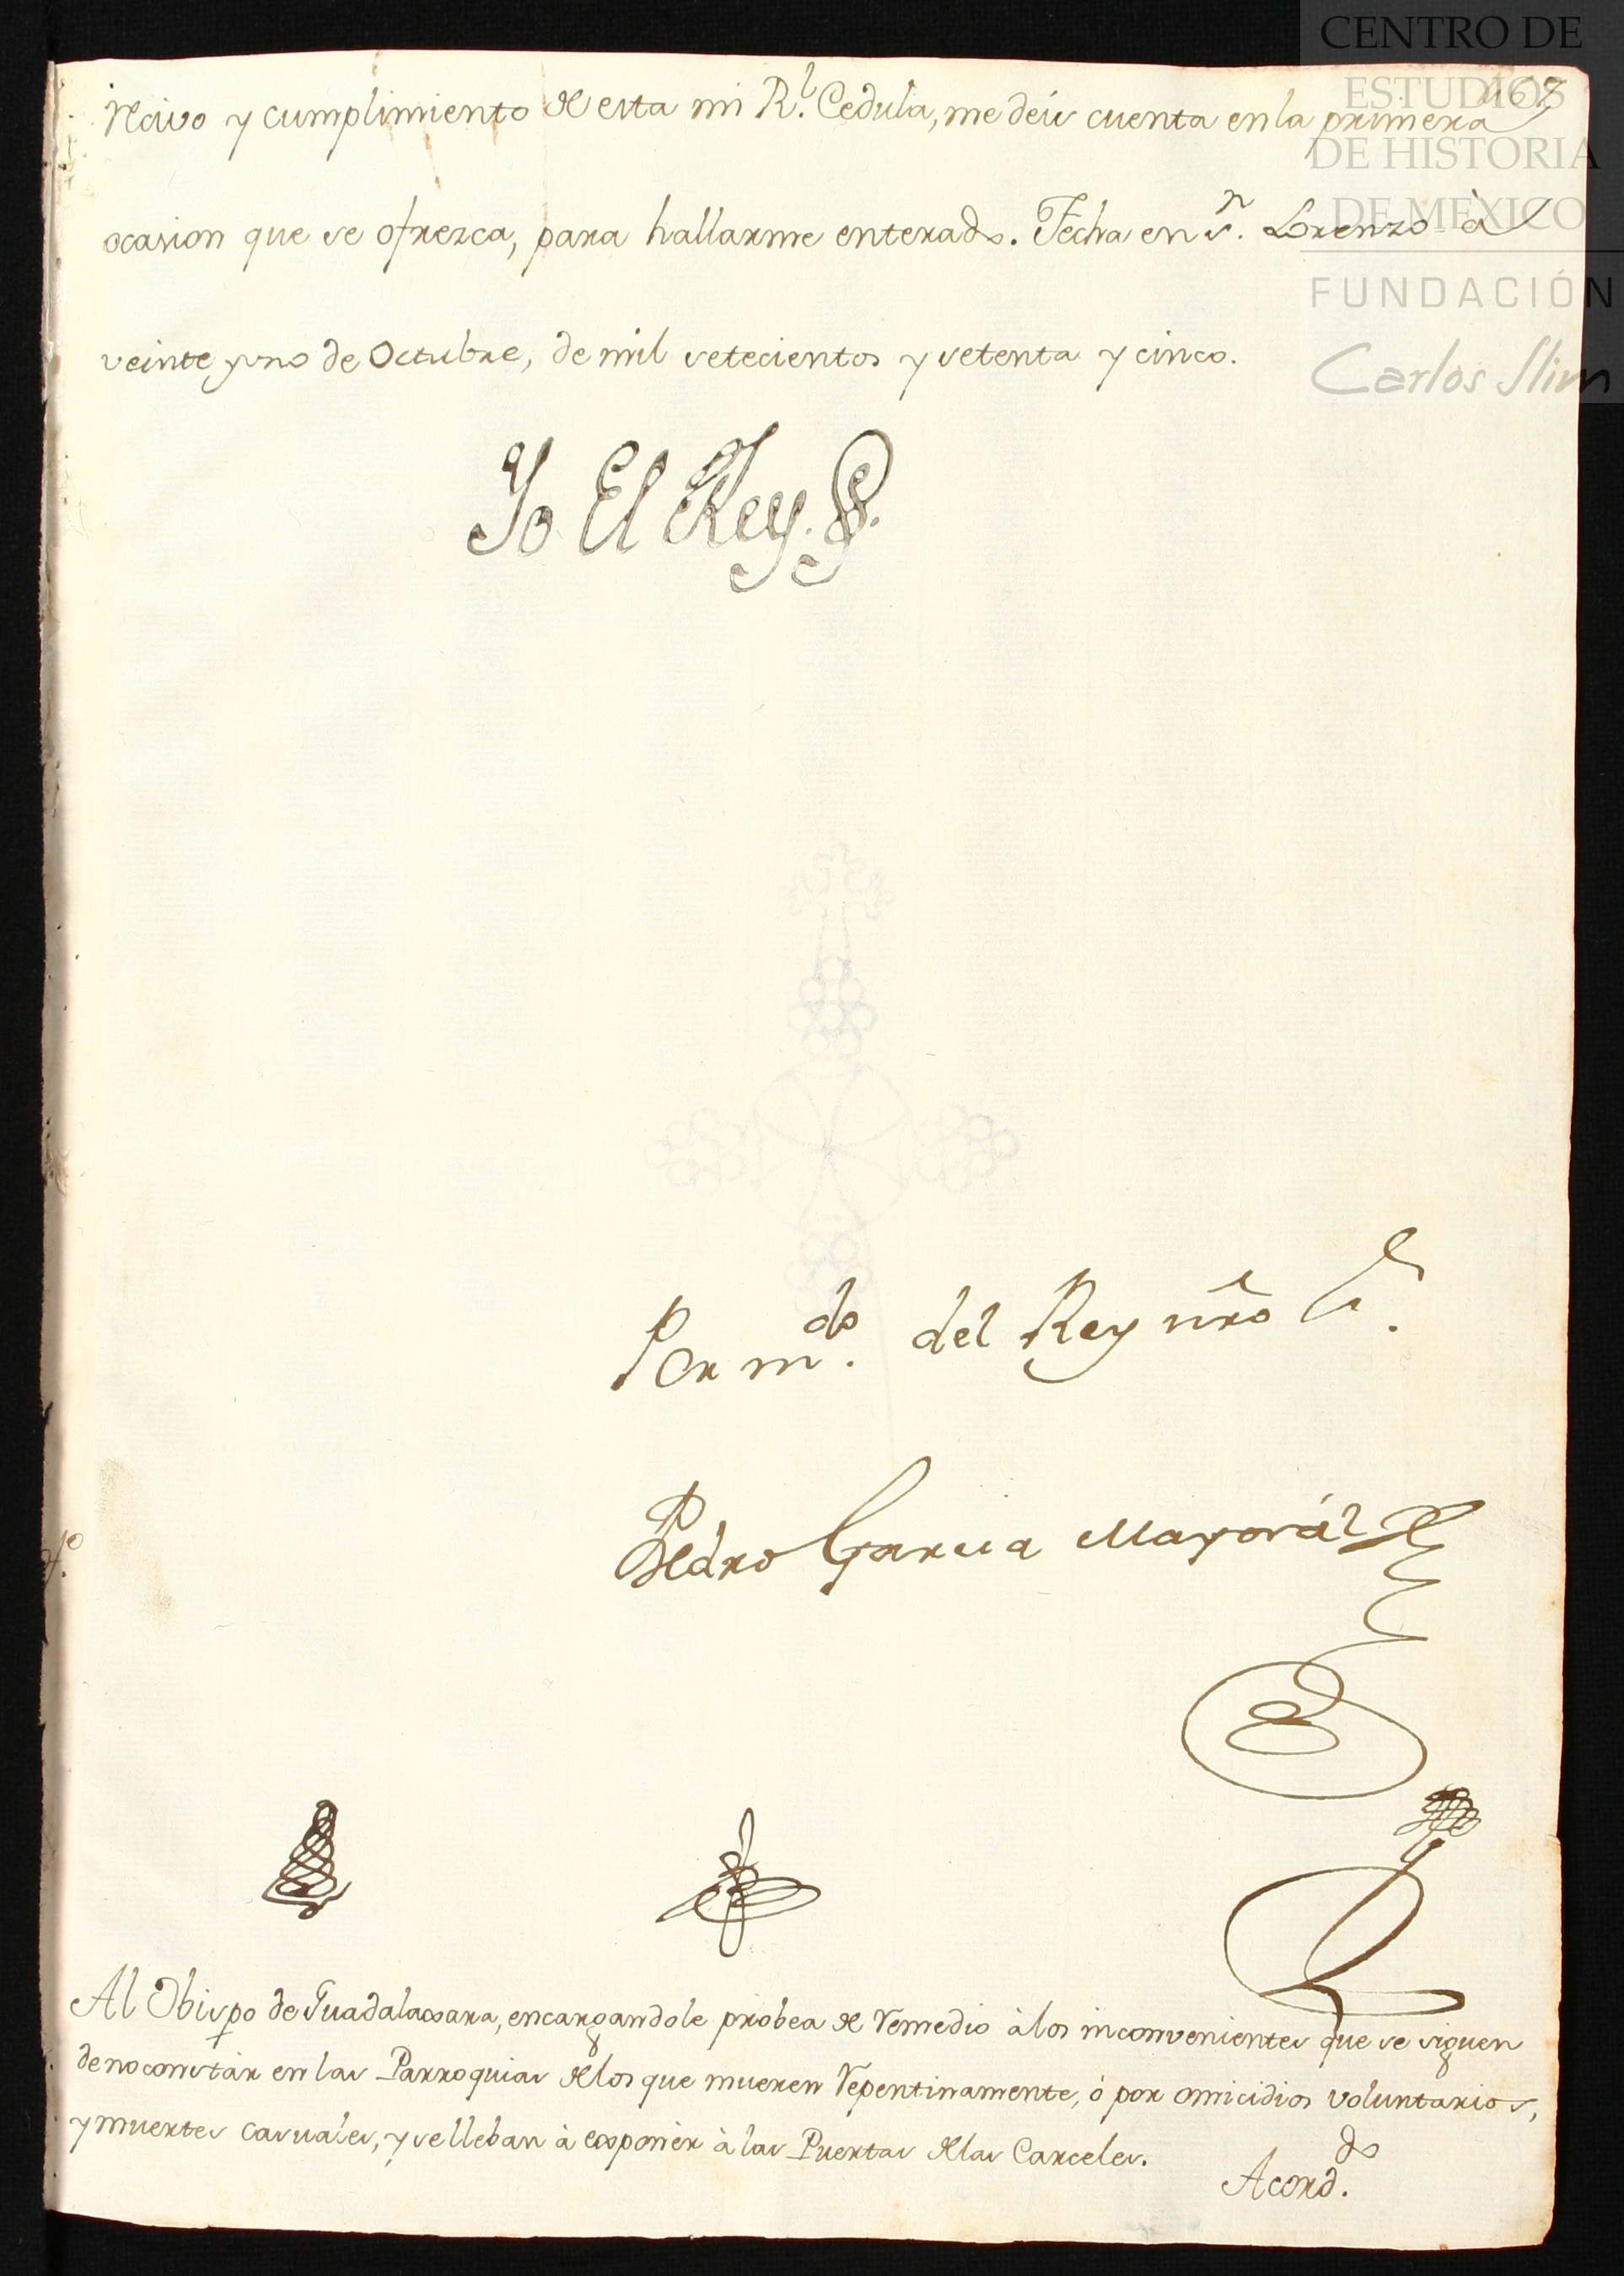 CENTRO DE
ESTUDIOS
DE HISTORIA
DE MÉXICO
FUNDACIÓN
Carlos Slim
Recivo y cumplimiento de esta mi Rl. Cedula, me deis cuenta en la primera
ocasion que se ofrezca, para hallarme enterado. Fecha en Sn. Lorenzo à
veinte y uno de Octubre, de mil setecientos y setenta y cinco.
Yo El Rey.
Por mdo. del Rey nro Sr.
Pedro Garcia Mayorál
Al Obispo de Guadalaxara, encargandole probea de remedio à los inconvenientes que se siguen
de no constár en las Parroquias de los que mueren repentinamente, ò por omicidios voluntarios,
y muertes casuales, y se lleban à exponèr à las Puertas de las Carceles.
Acorddo.